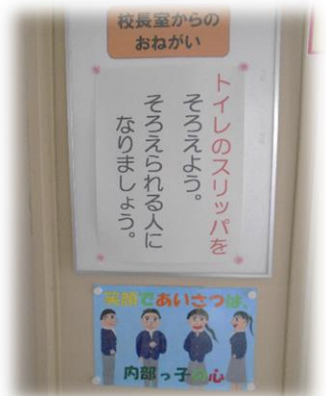 校長室からの
おねがい
トイレのスリッパを
そろえよう。
そろえられる人に
なりましょう。
笑顔であいさつは、
内部っ子の心